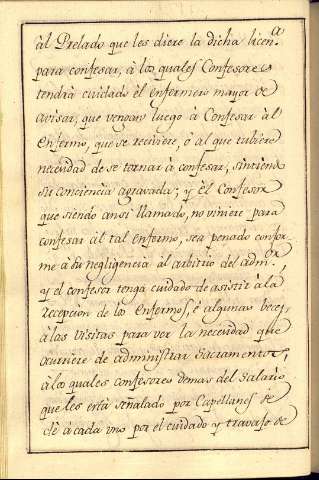 àl Prelado que les diere la dicha licen.ᵃ
para confesar, à los quales Confesores
tendrà cuidado èl enfermero mayor de
avisar, que vengan luego à Confesar àl
Enfermo, que se reciviere, ò al que tubiere
necesidad de se tornar à confesar, sintiendo
su conciencia agravada; y èl Confesor
que siendo ansi llamado, no viniere para
confesar àl tal enfermo, sea penado confor-
me à su negligencia àl arbitrio del adm.ʳ,
y el confesor tenga cuidado de asistir à la
recepcion de los Enfermos, è algunas beces,
à las visitas para ver la necesidad que
ocurriere de administrar Sacramentos;
à los quales confesores demas del Salario
que les està señalado por Capellanes se
dè à cada uno por el cuidado y travajo de